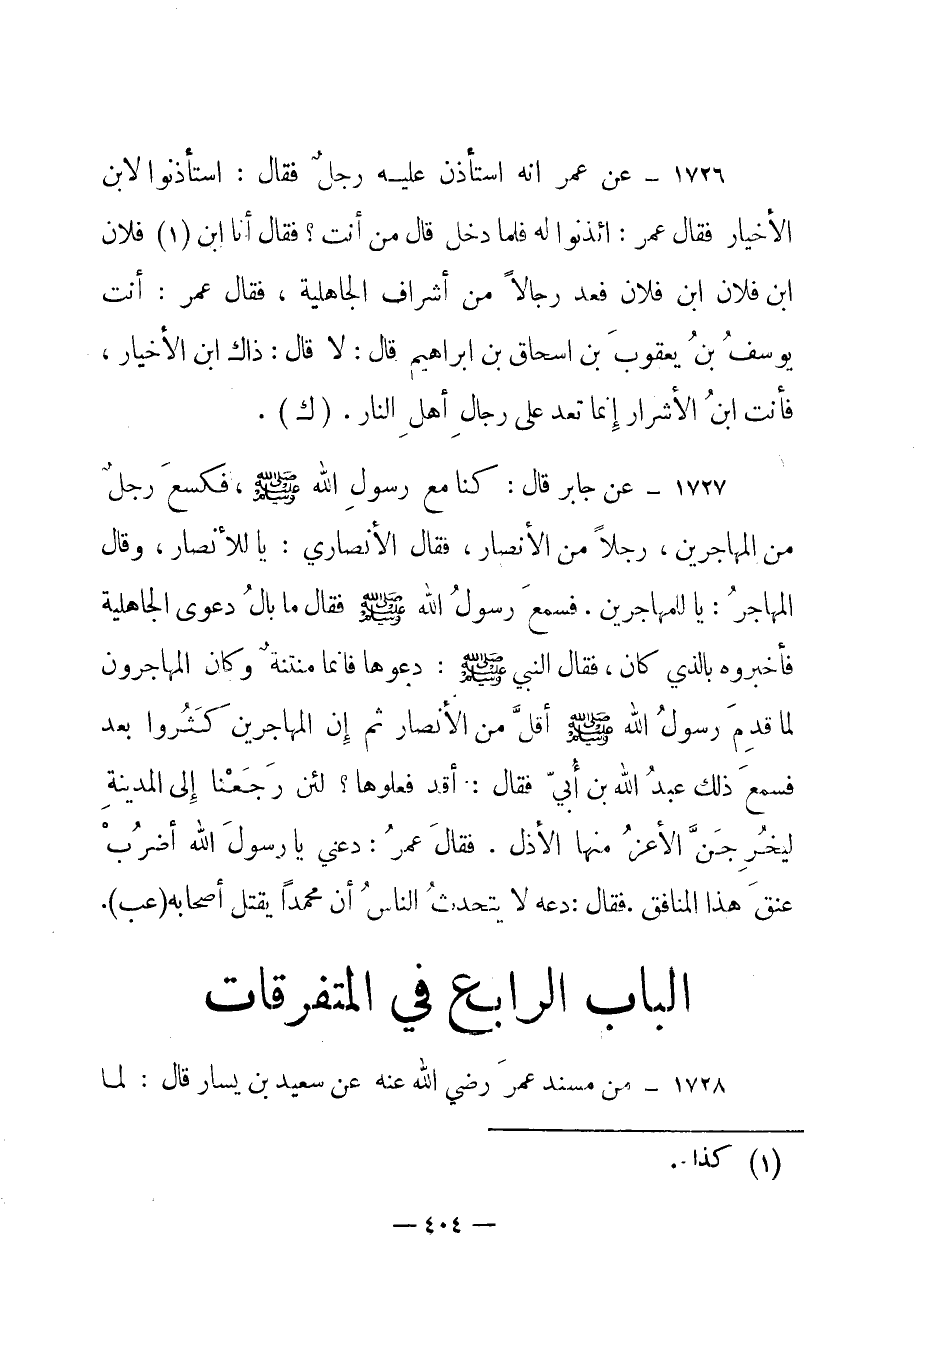 ١٧٢٦ ـ عن عمر انه استأذن عليه رجلٌ فقال : استأذنوا لابن
الأخيار فقال عمر : ائذنوا له فلما دخل قال من أنت ؟ فقال أنا ابن (١) فلان
ابن فلان ابن فلان فعد رجالاً من أشراف الجاهلية ، فقال عمر : أنت
يوسفُ بنُ يعقوبَ بن اسحاق بن ابراهيم قال : لا قال : ذاك ابن الأخيار ،
فأنت ابنُ الأشرار إنما تعد على رجالِ أهلِ النار . ( ك ) .
١٧٢٧ ـ عن جابر قال : كنا مع رسولِ الله ﷺ ، فكسعَ رجلٌ
من المهاجرين ، رجلاً من الأنصار ، فقال الأنصاري : يا للأنصار ، وقال
المهاجرُ : يا للمهاجرين . فسمعَ رسولُ الله ﷺ فقال ما بالُ دعوى الجاهلية
فأخبروه بالذي كان ، فقال النبي ﷺ : دعوها فانها منتنةٌ وكان المهاجرون
لما قدِمَ رسولُ الله ﷺ أقلَّ من الأنصار ثم إن المهاجرين كَثُروا بعد
فسمعَ ذلك عبدُ الله بن أُبيّ فقال : أقد فعلوها ؟ لئن رَجَعْنا إلى المدينةِ
ليخُرِجَنَّ الأعزُ منها الأذل . فقالَ عمرُ : دعني يا رسولَ الله أضربْ
عنقَ هذا المنافق . فقال : دعه لا يتحدثُ الناسُ أن محمداً يقتل أصحابه (عب).
الباب الرابع في المتفرقات
١٧٢٨ ـ من مسند عمرَ رضي الله عنه عن سعيد بن يسار قال : لما
(١) كذا .
— ٤٠٤ —